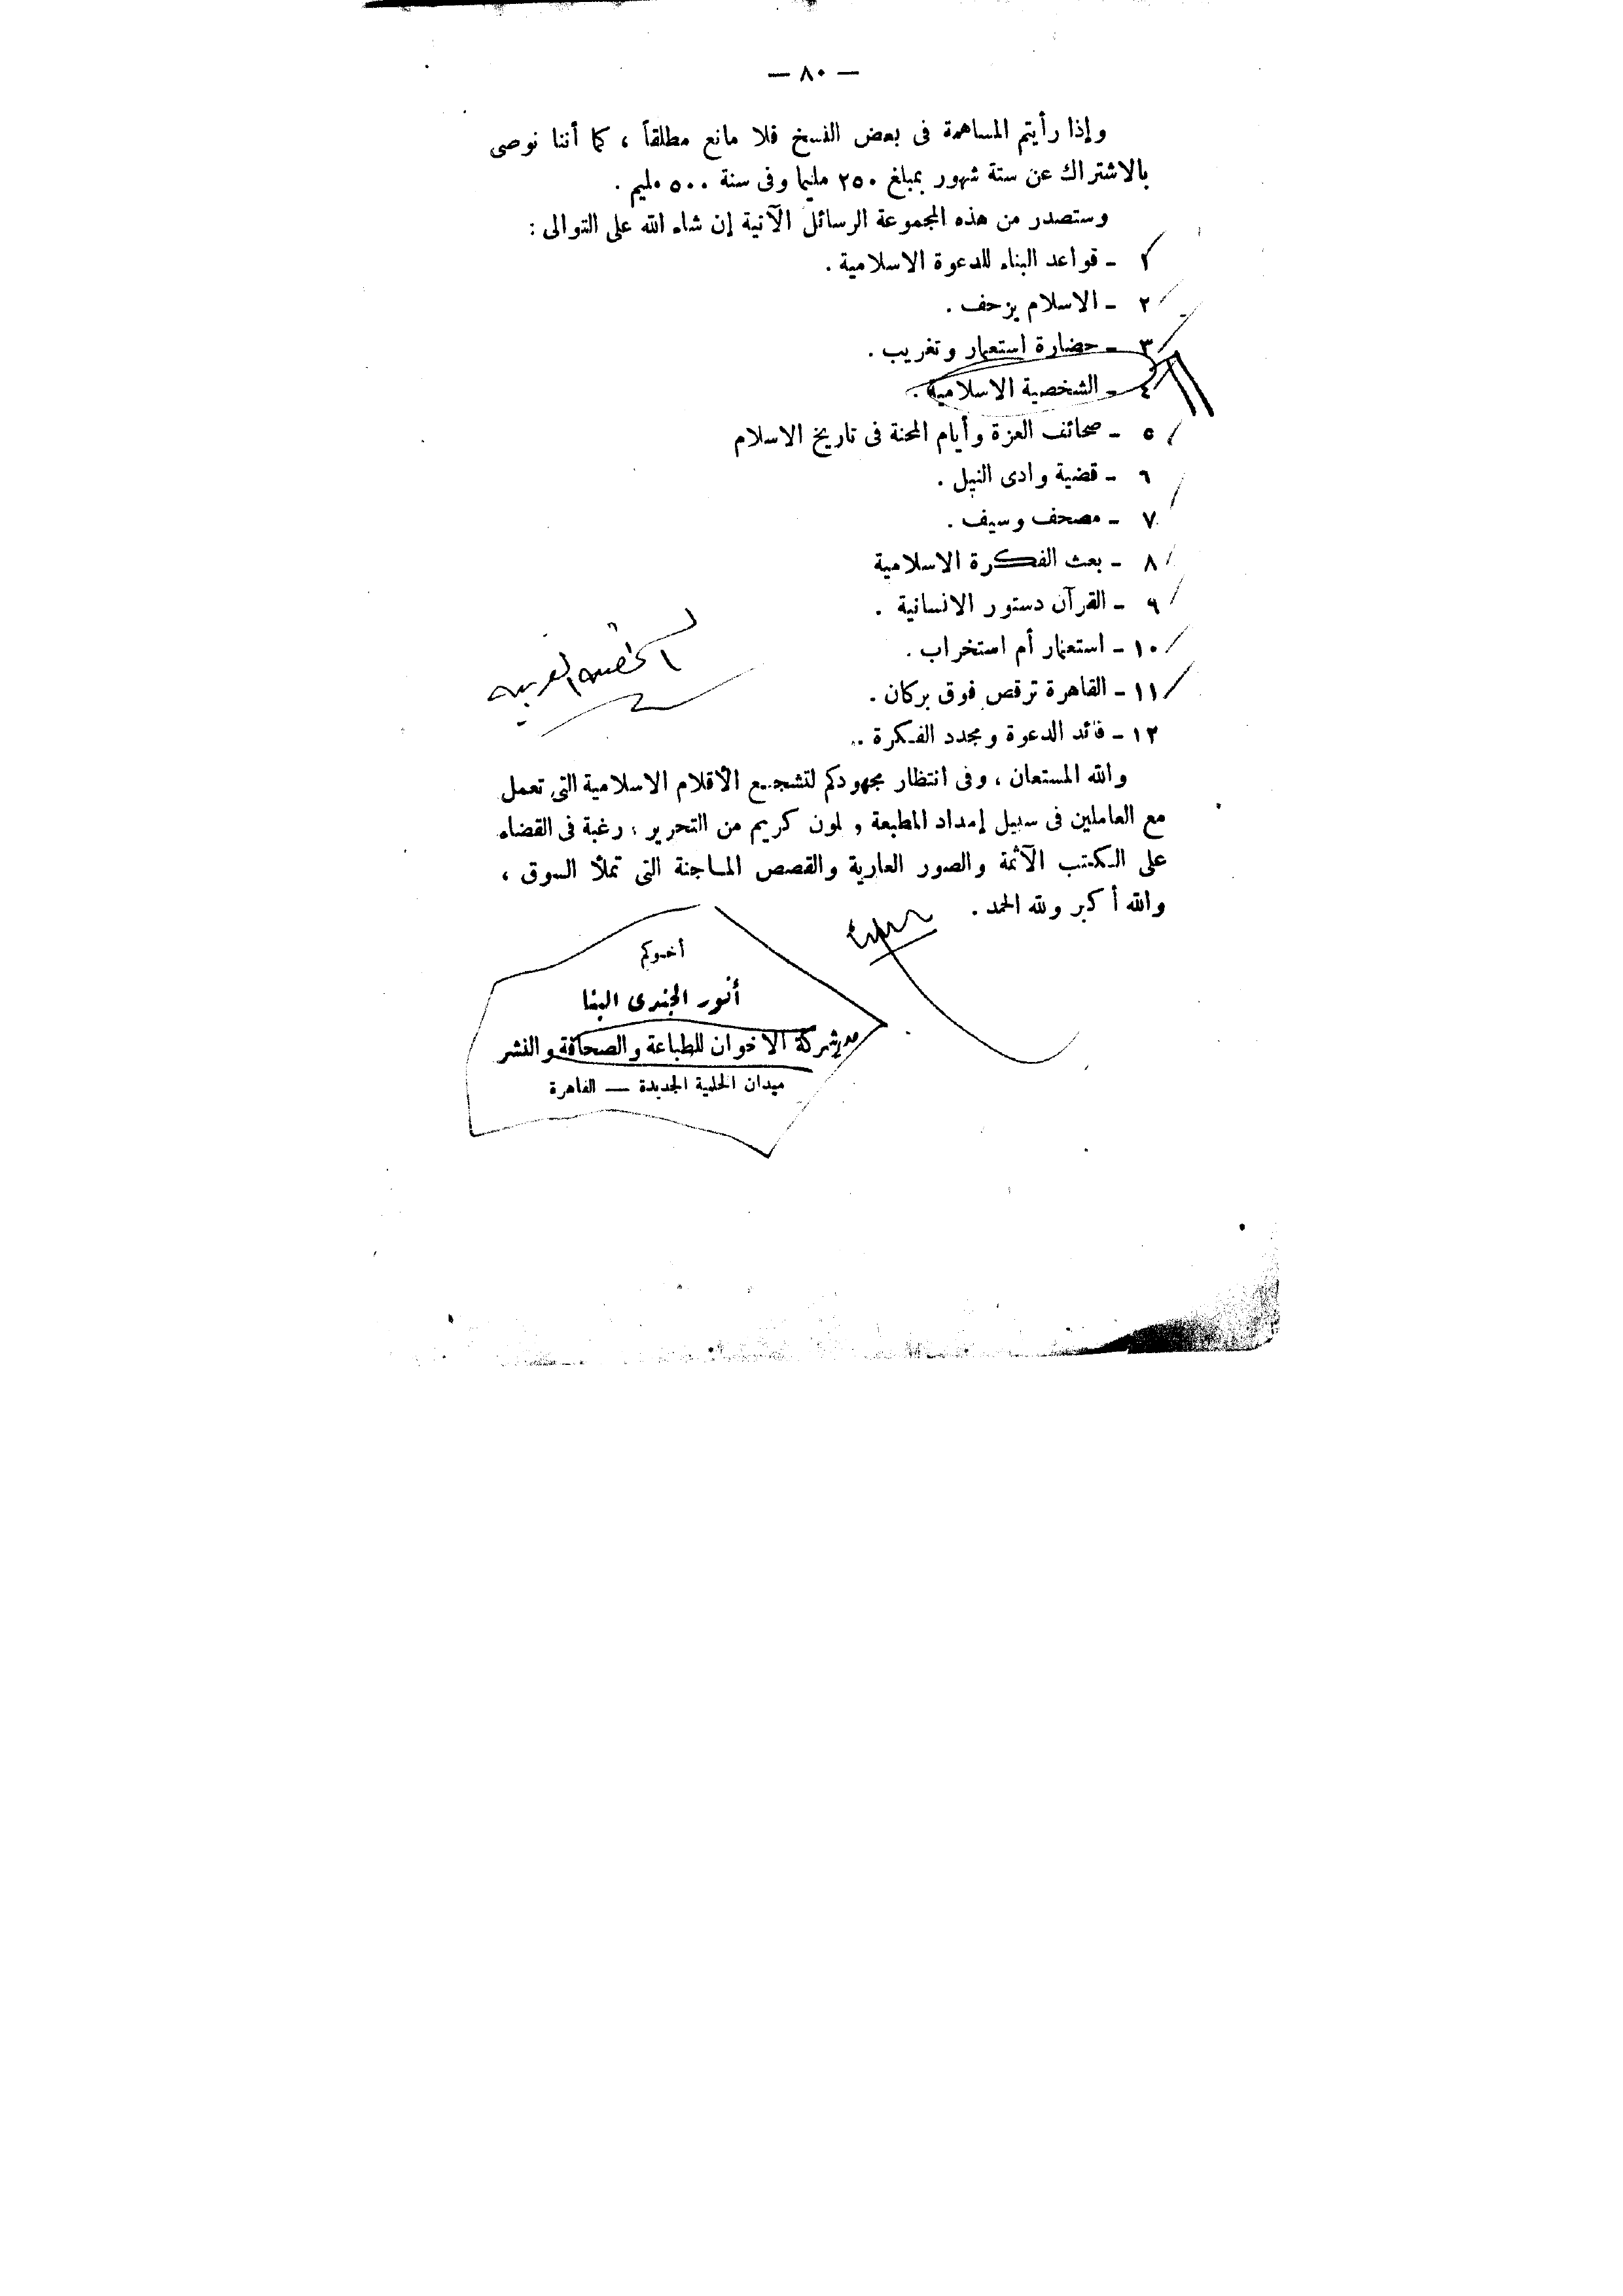 — ٨٠ —
وإذا رأيتم المساهمة فى بعض النسخ فلا مانع مطلقاً ، كما أننا نوصى
بالاشتراك عن ستة شهور بمبلغ ٢٥٠ مليما وفى سنة ٥٠٠ مليم .
وستصدر من هذه المجموعة الرسائل الآتية إن شاء الله على التوالى :
١ - قواعد البناء للدعوة الاسلامية .
٢ - الاسلام يزحف .
٣ - حضارة استعمار وتغريب .
٤ - الشخصية الاسلامية .
٥ - صحائف العزة وأيام المحنة فى تاريخ الاسلام
٦ - قضية وادى النيل .
٧ - مصحف وسيف .
٨ - بعث الفكرة الاسلامية
٩ - القرآن دستور الانسانية .
١٠ - استعمار أم استخراب .
١١ - القاهرة ترقص فوق بركان .
١٢ - قائد الدعوة ومجدد الفكرة ..
والله المستعان ، وفى انتظار مجهودكم لتشجيع الأقلام الاسلامية التى تعمل
مع العاملين فى سبيل إمداد المطبعة و لون كريم من التحرير ، رغبة فى القضاء
على الكتب الآثمة والصور العارية والقصص الماجنة التى تملأ السوق ،
والله أكبر ولله الحمد .
أخوكم
أنور الجندى البنا
مدير شركة الاخوان للطباعة والصحافة والنشر
ميدان الحلمية الجديدة — القاهرة